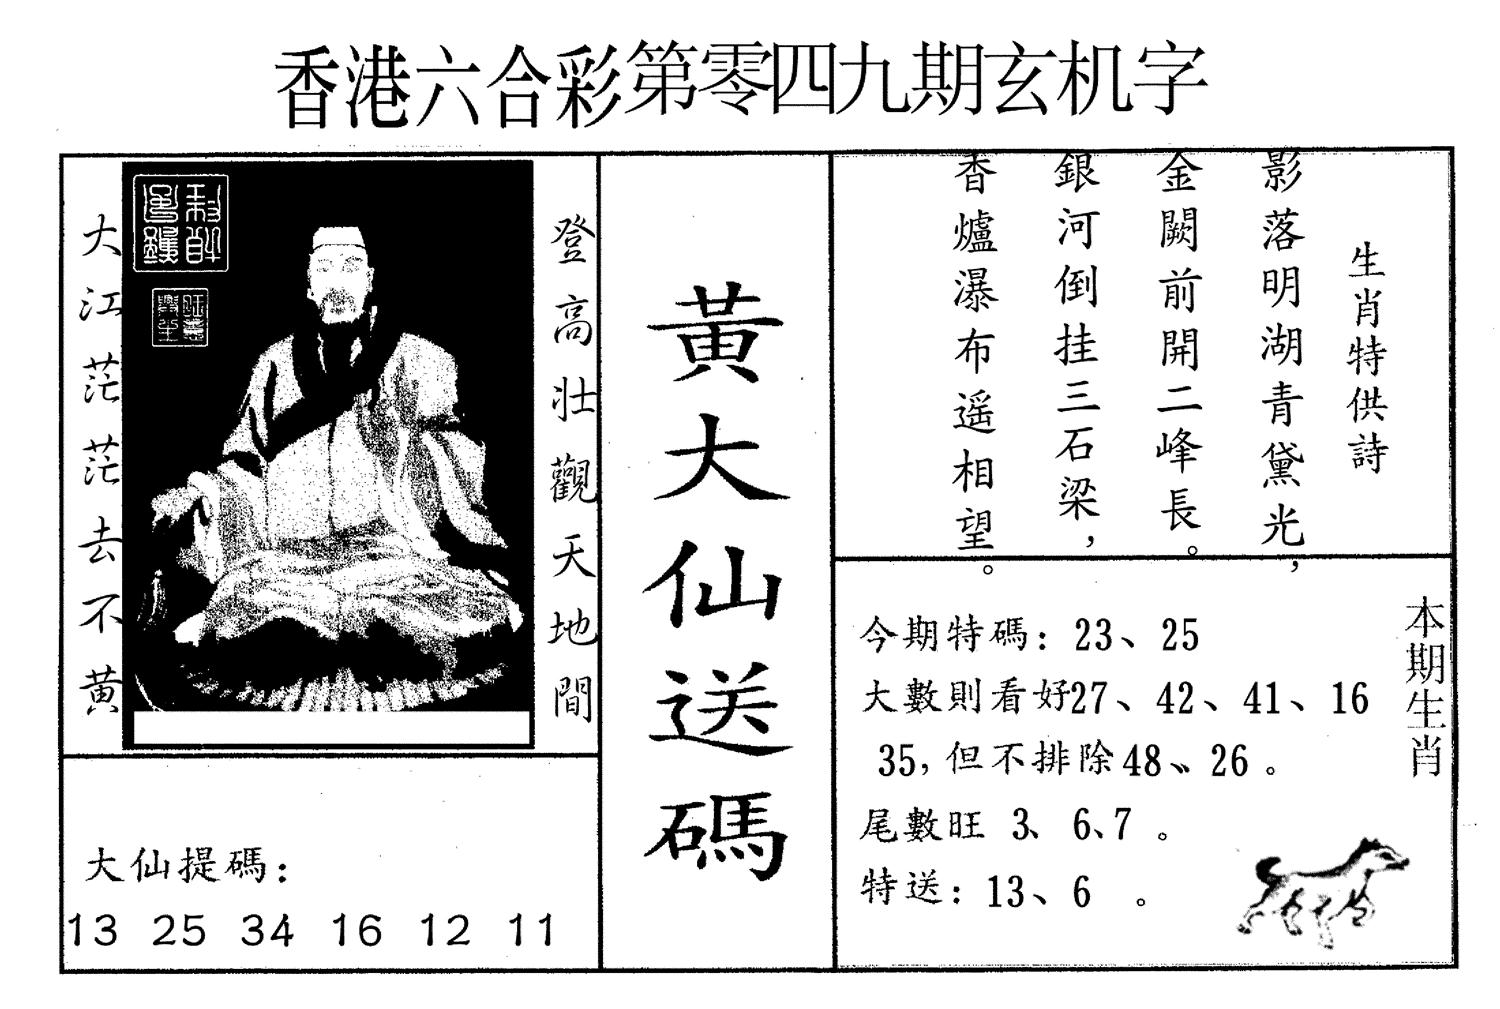 香港六合彩第零四九期玄机字
登高壯觀天地間
大江茫茫去不黄
大仙提碼：
13 25 34 16 12 11
黃大仙送碼
生肖特供詩
影落明湖青黛光，
金闕前開二峰長。
銀河倒挂三石梁，
香爐瀑布遥相望。
本期生肖
今期特碼：23、25
大數則看好27、42、41、16
35，但不排除48、26。
尾數旺 3、6、7 。
特送：13、6 。